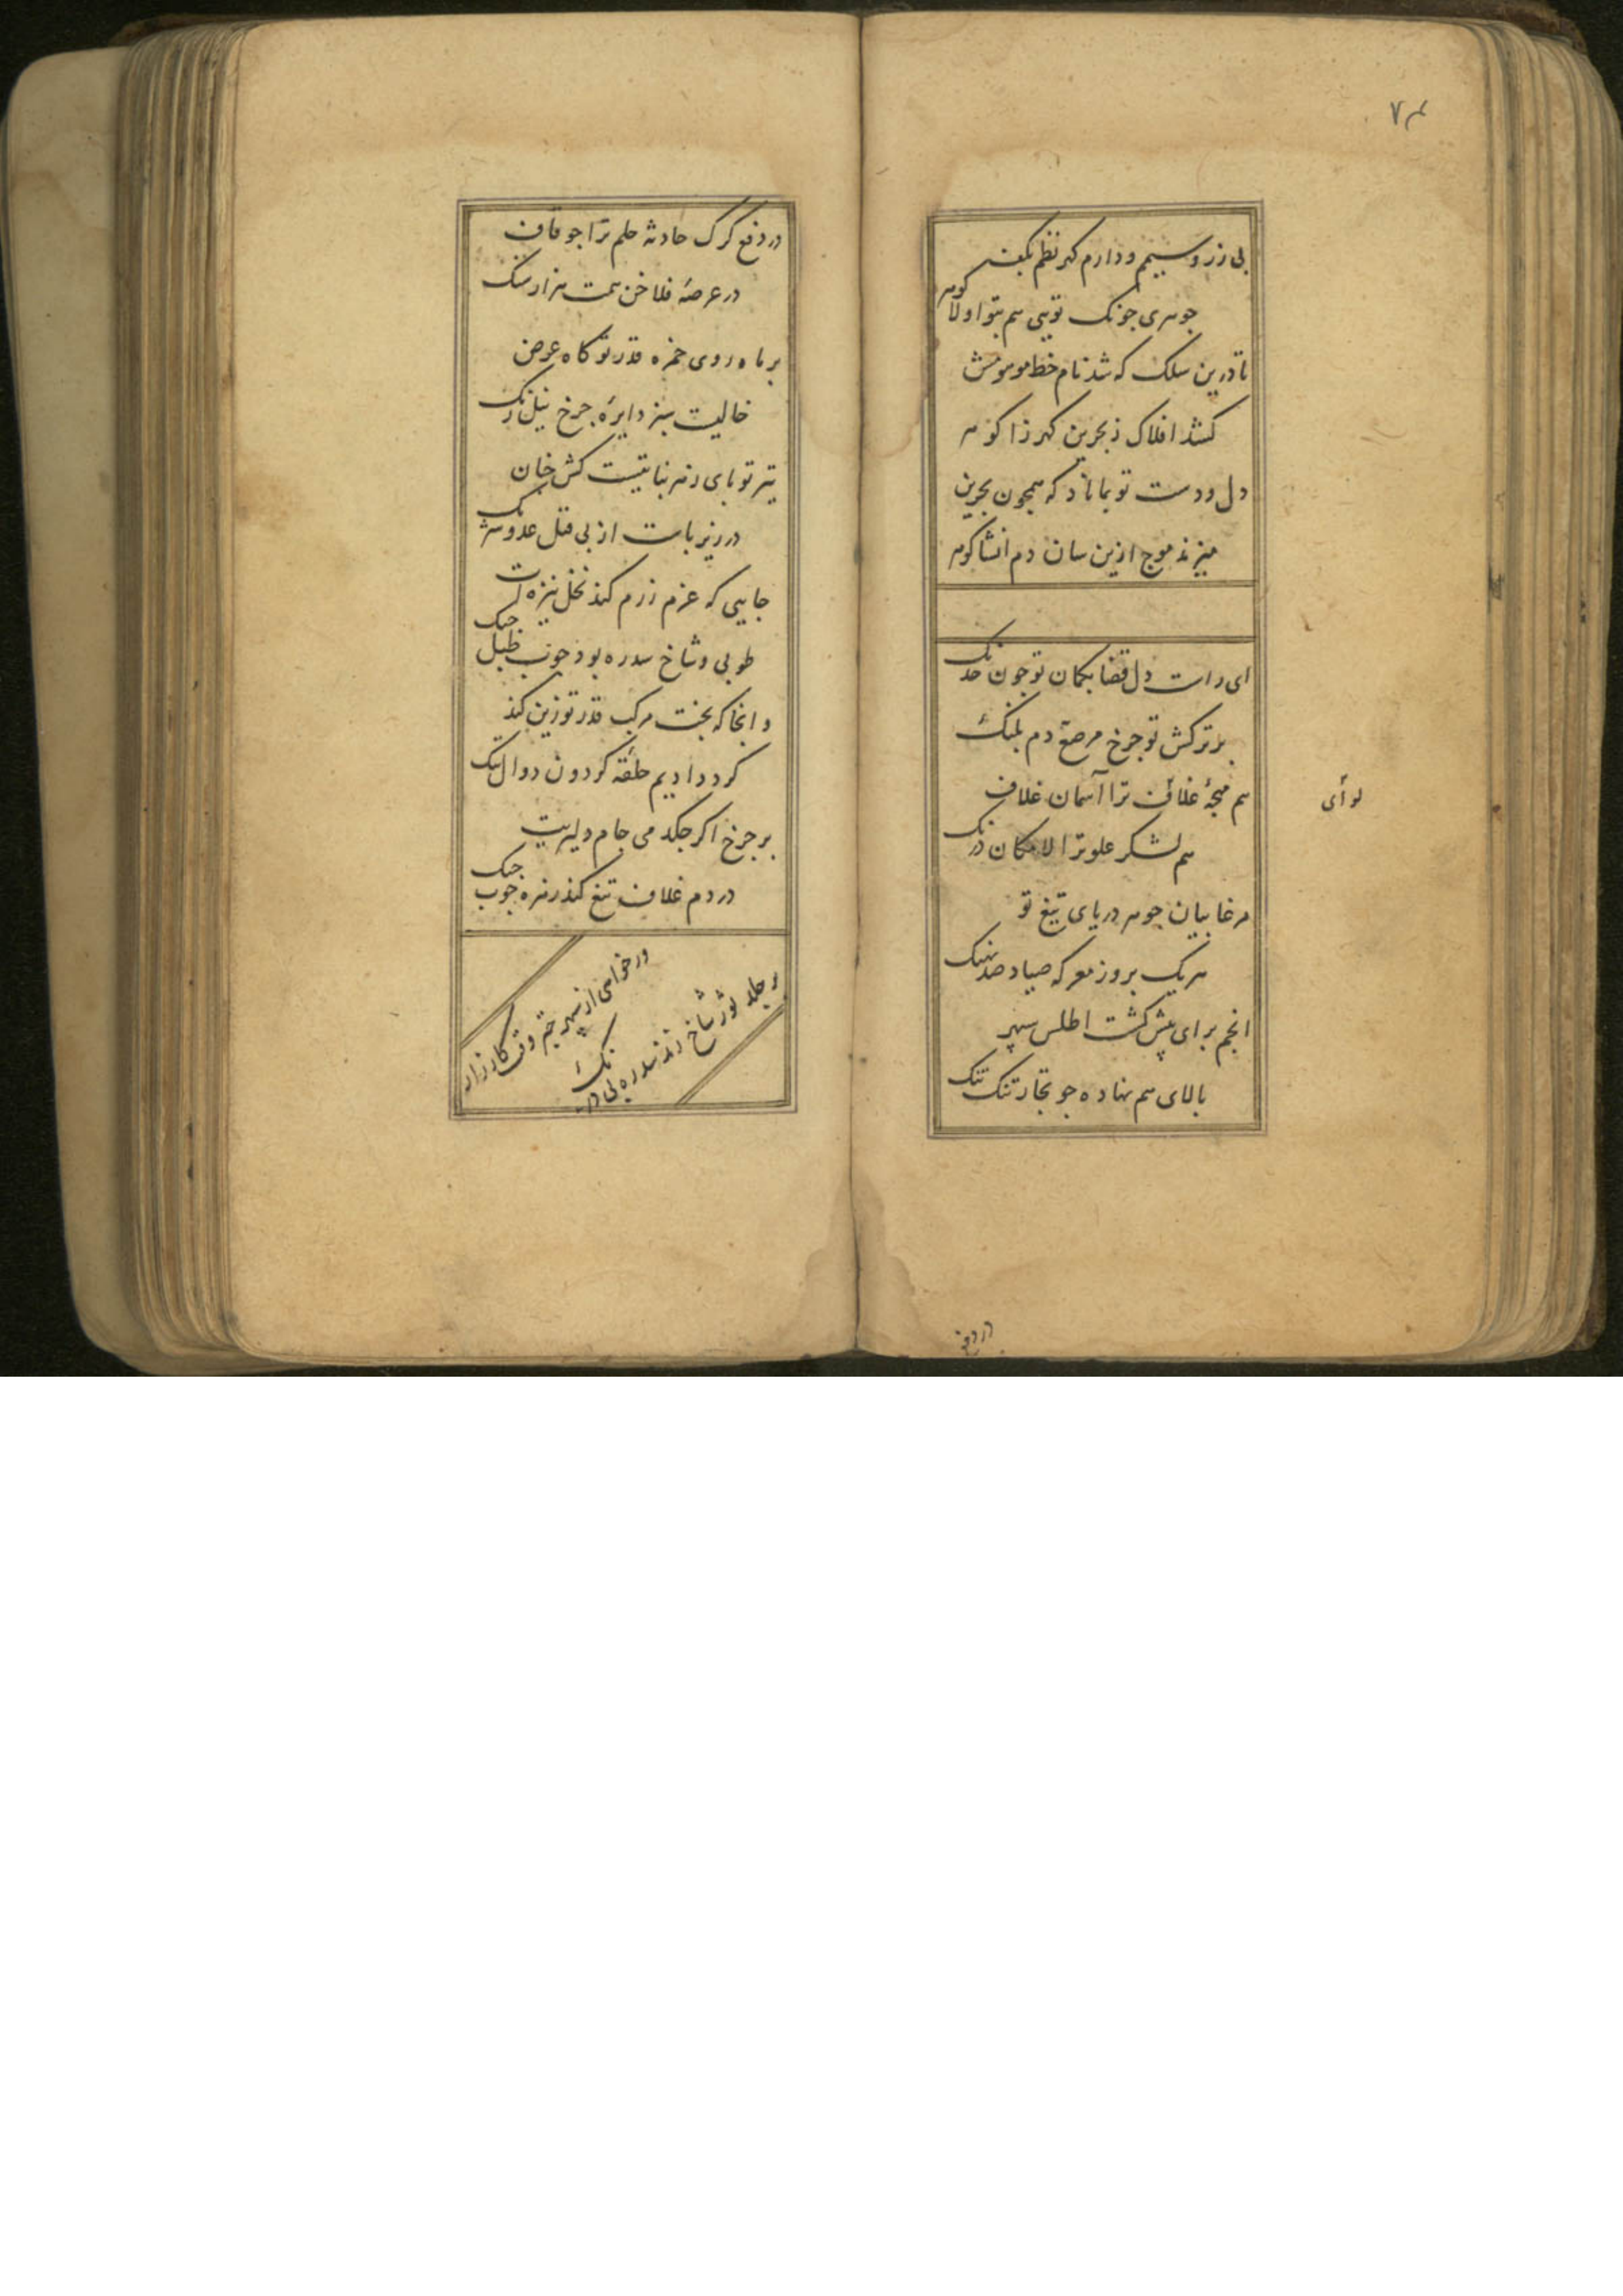 ۷۴
بی زر و سیمم و دارم گهر نظم بکف
جوهری چونک تویی هم بتو اولا گوهر
تا درین سلک که شد نام خط موهومش
کشد افلاک ز بحرین گهرزا گوهر
دل و دست تو بماناد که همچون بحرین
میزند موج ازین سان دم انشا گوهر
ای راست دل قضا بکمان تو چون خدنک
بر ترکش تو چرخ مرصع دم پلنک
هم منجه غلاف ترا آسمان غلاف
لوای
هم لشکر علو ترا لامکان درنک
مرغابیان جوهر دریای تیغ تو
هر یک بروز معرکه صیاد صد نهنک
انجم برای پیش کشت اطلس سپهر
بالای هم نهاده چو تجار تنک تنک
در دفع
در دفع کرک حادثه حلم ترا چو قاف
در عرصه فلاخن همت هزار سنک
بر ماه روی خمره قدر تو کاه عرض
خالیست سبز دایره چرخ نیل رنک
تیر تو پای زهر نباتیست کش خان
در زیر پات از پی قتل عدو سرنک
جایی که عزم رزم کند نخل نیزه ات
طوبی و شاخ سدره بود چوب طبل جنک
و انجا که بخت مرکب قدر تو زین کند
کردد ادیم حلقه کردون دوال تنک
بر چرخ اکر چکد می جام دلیریت
در دم غلاف تیغ کند زهره چوب چنک
ور خواهی از سپهر چتر وقت کارزار
بر جلد ثور شاخ زند سدره بی درنک